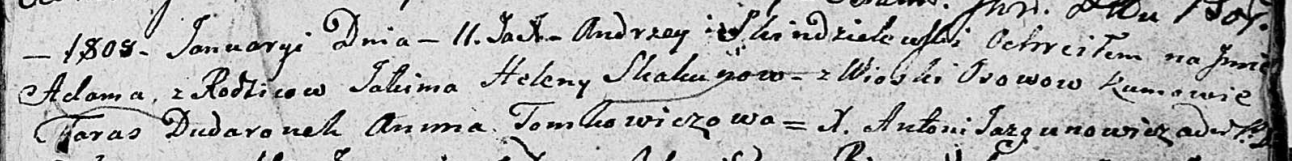 — 1808 — Januaryi Dnia — 11. Ja X. Andrzey Skindzielewski Ochrciłem na Jmie
Adama, z Rodzicow Jakima Heleny Skakunow — z Wioski Osowow Kumowie
Taras Dudaronek Anna Tomkowiczowa = X. Antoni Jazgunowicz